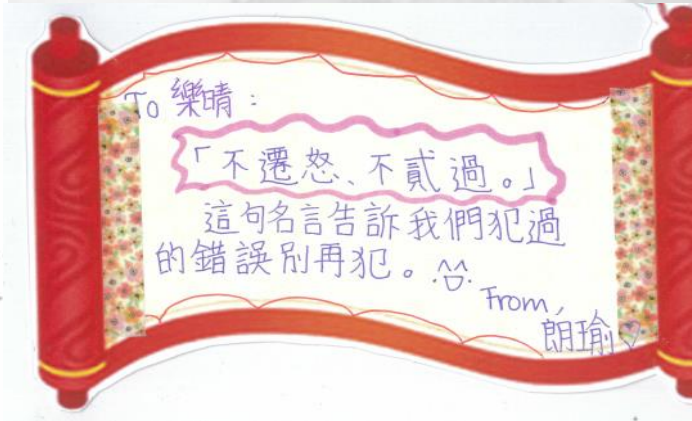 To 樂晴：
「不遷怒、不貳過。」
這句名言告訴我們犯過
的錯誤別再犯。^^
From,
朗瑜♡